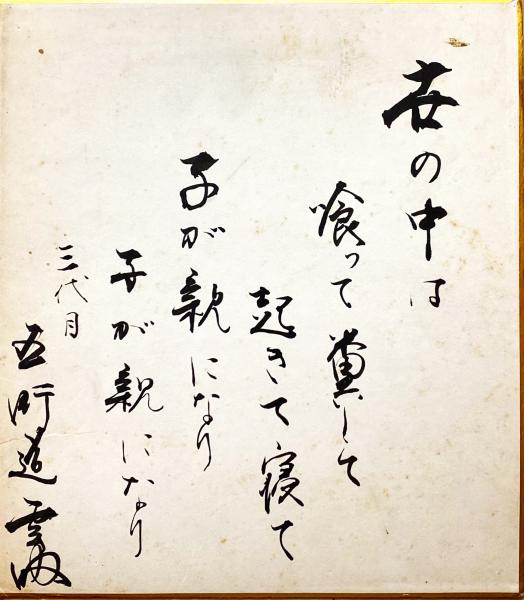 世の中は
喰って糞して
起きて寝て
子が親になり
子が親になり
三代目
五町道雲